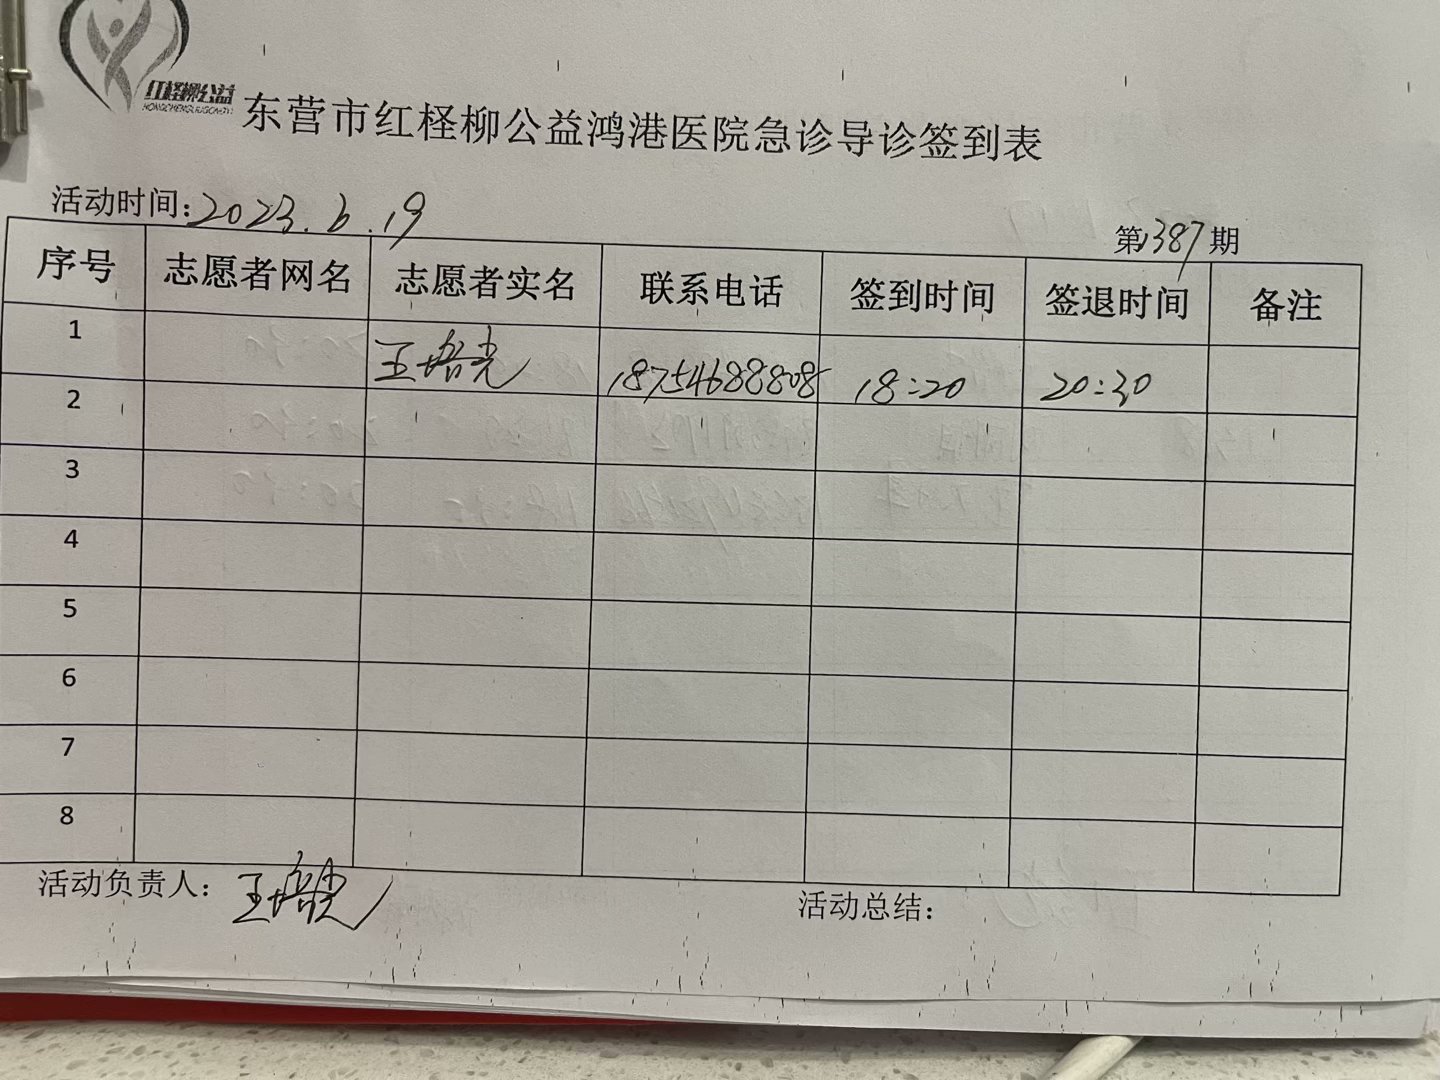 红柽柳公益
东营市红柽柳公益鸿港医院急诊导诊签到表
活动时间：2023.6.19
第1387期
序号 志愿者网名 志愿者实名 联系电话 签到时间 签退时间 备注
1 王培光 18754688808 18:20 20:30
2
3
4
5
6
7
8
活动负责人：王培光
活动总结：